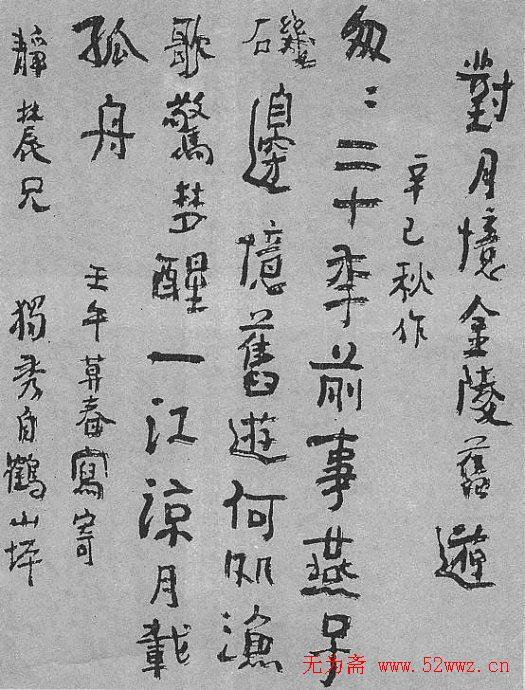 對月憶金陵舊遊
辛巳秋作
匆：二十年前事燕子
磯邊憶舊遊何処漁
歌驚夢醒一江涼月載
孤舟
壬午莫春寫寄
靜農兄
獨秀自鶴山坪
无为斋 www.52wwz.cn